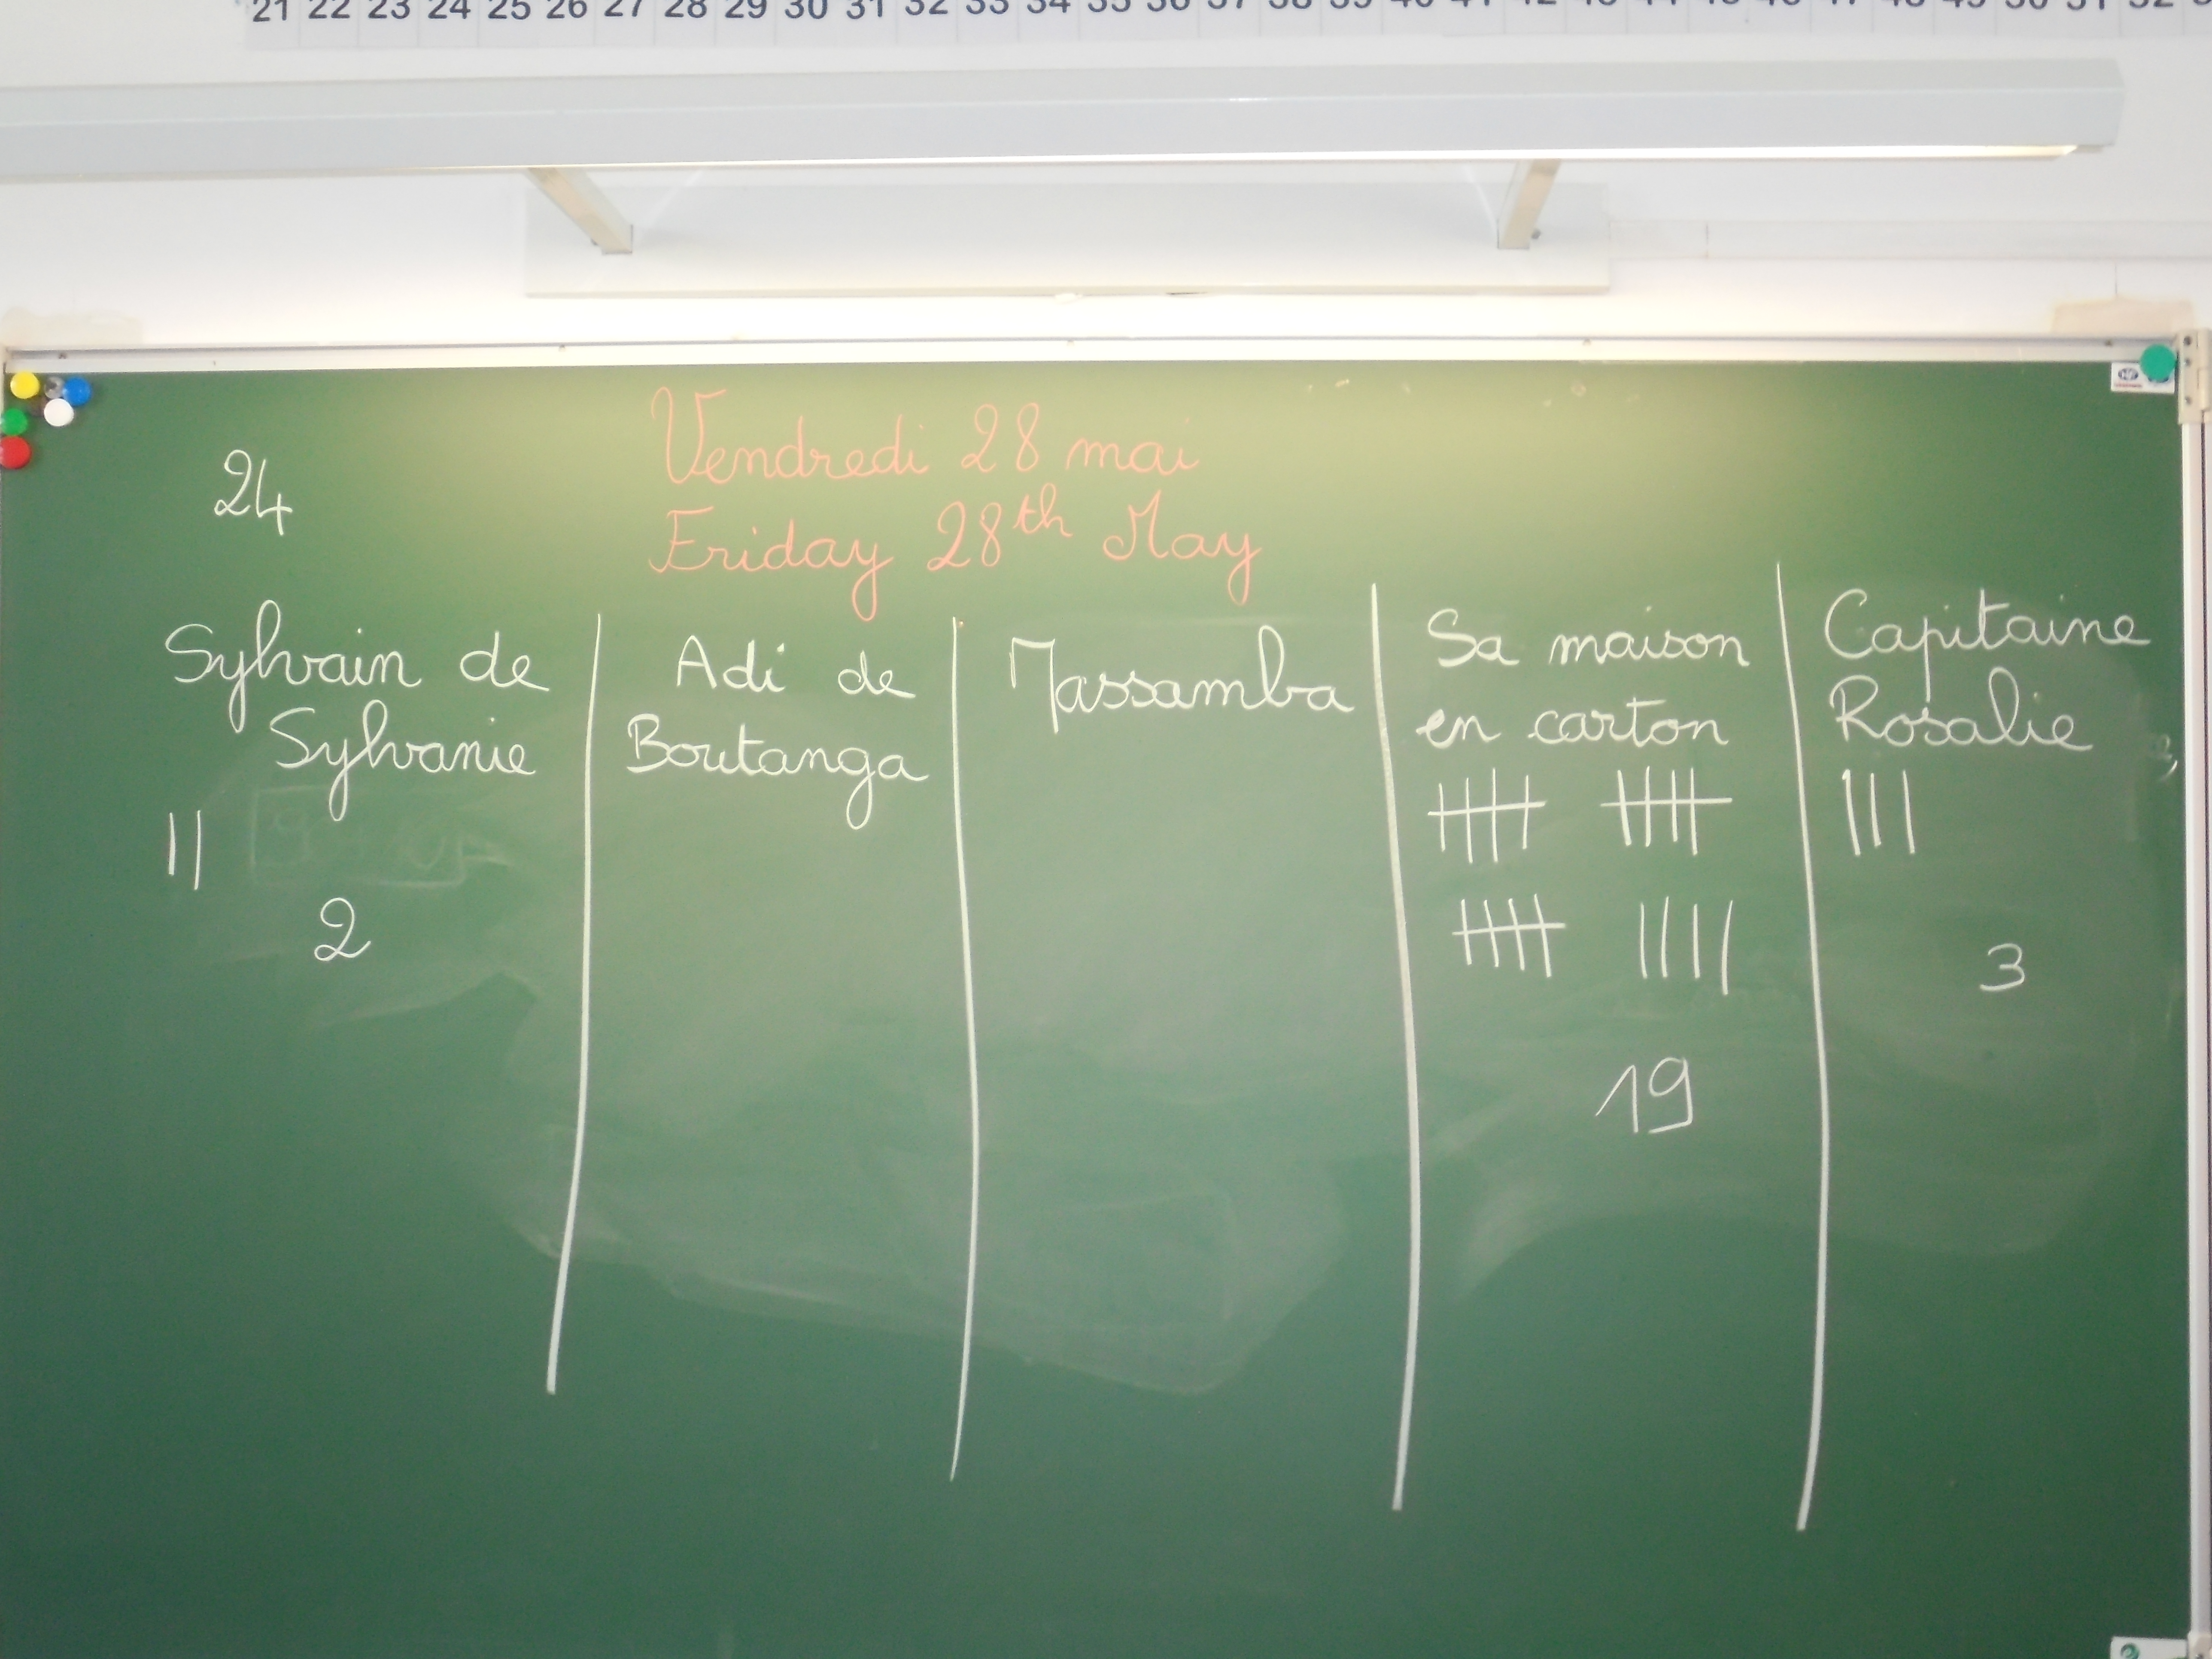 21 22 23 24 25 26 27 28 29 30 31 32 33 34 35 36 37 38 39 40 41 42 43 44 45 46 47 48 49 50 51 52
24
Vendredi 28 mai
Friday 28th May
Sylvain de
Sylvanie
2
Adi de
Boutanga
Massamba
Sa maison
en carton
19
Capitaine
Rosalie
3